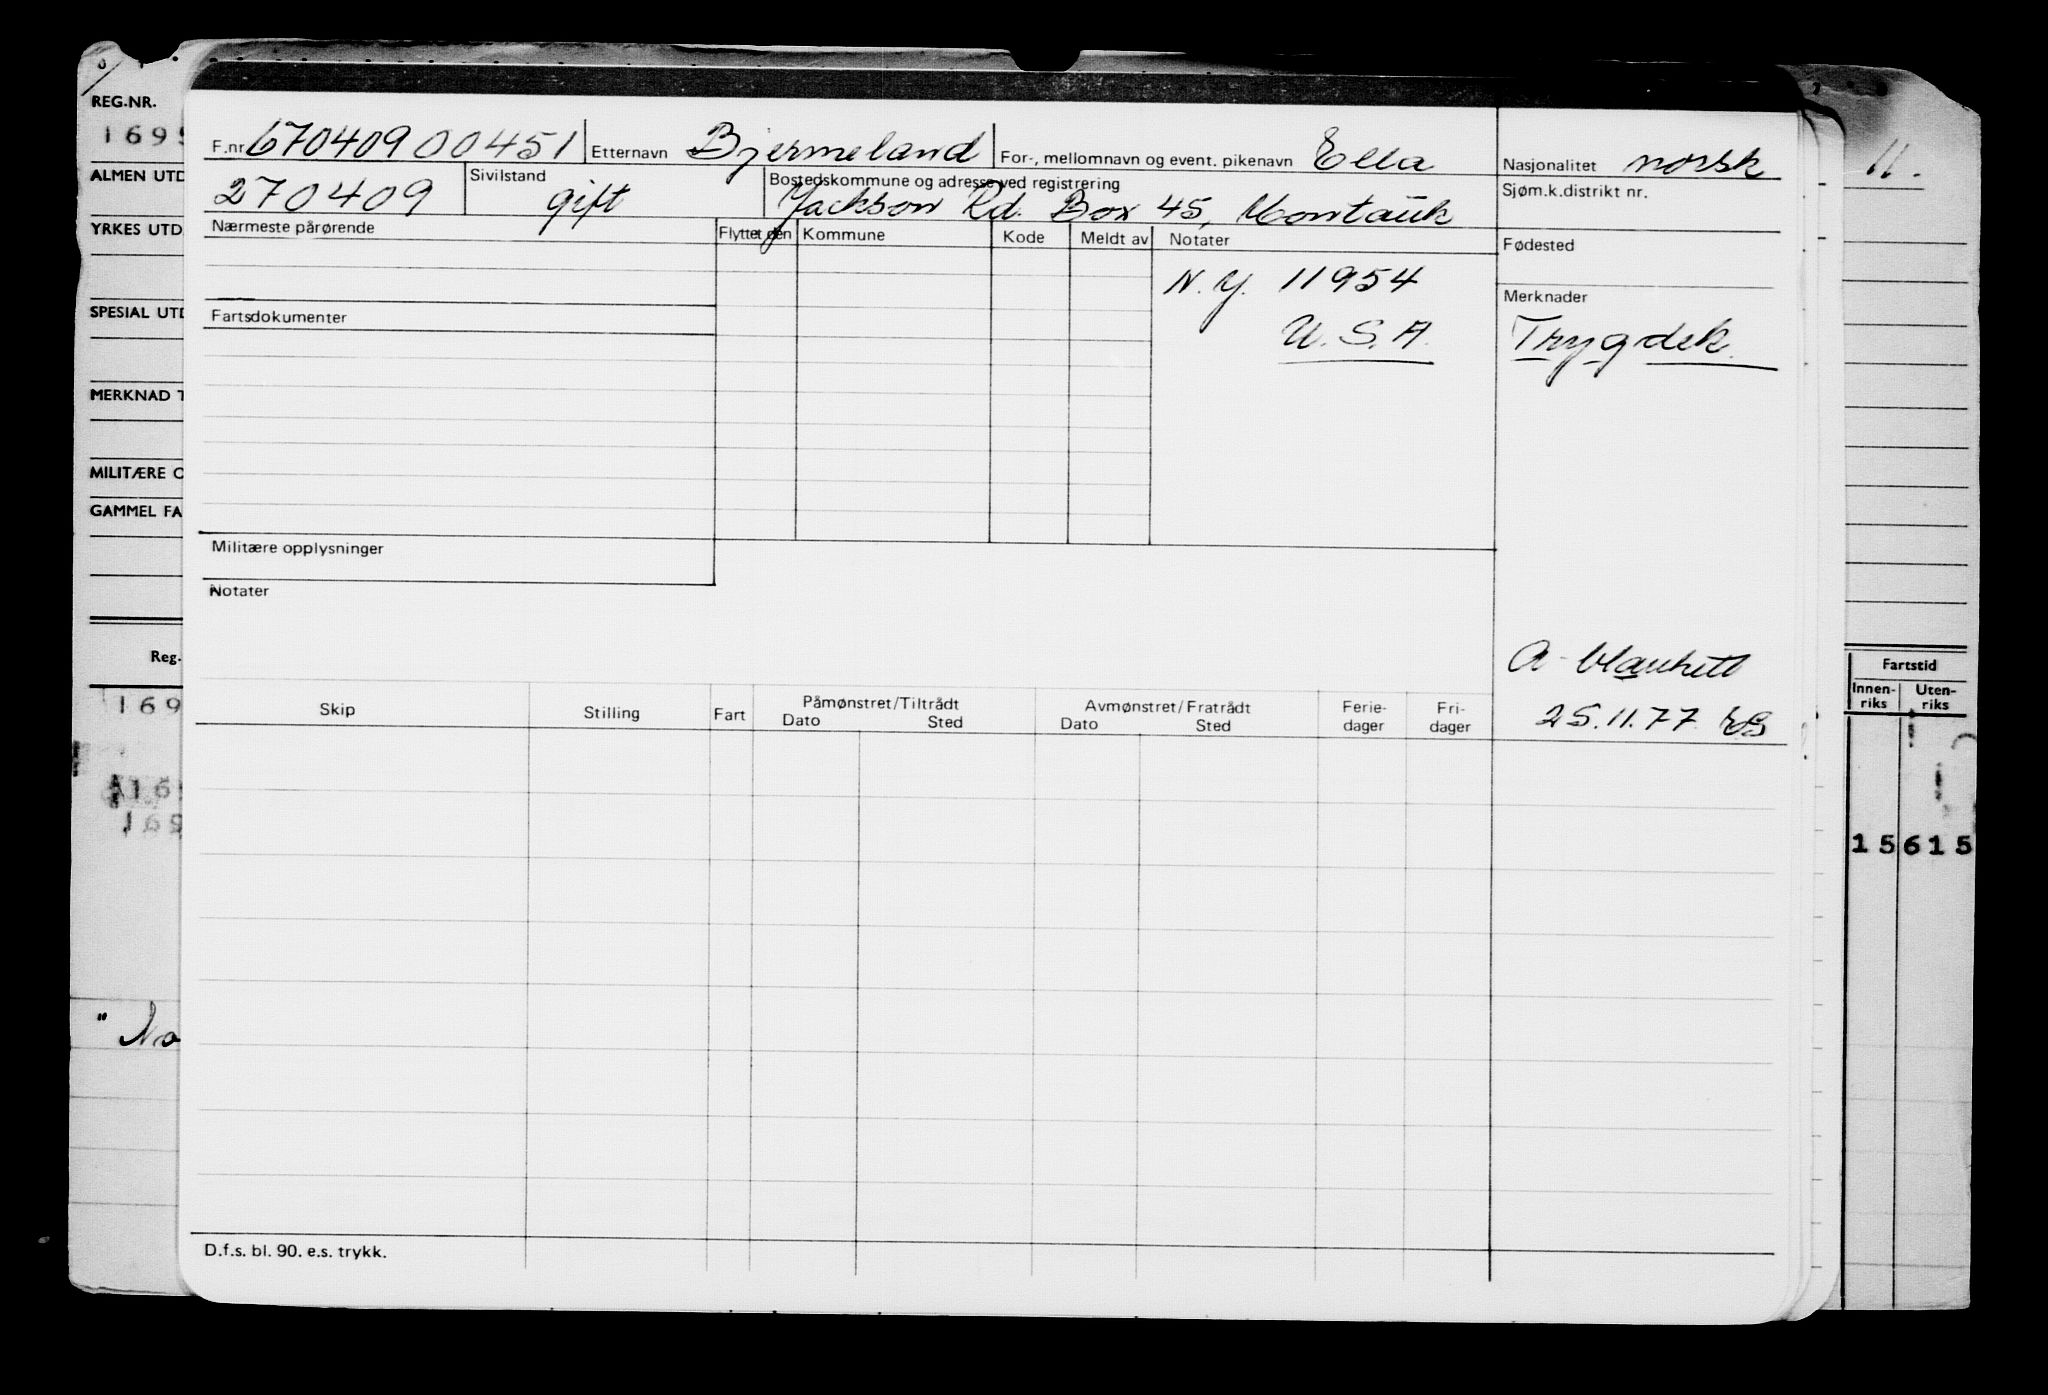 REG.NR.
169
ALMEN UTD
YRKES UTD.
SPESIAL UTD
MERKNAD T
MILITÆRE O
GAMMEL FA
Reg.
169
"No
F.nr 67040900451 Etternavn Bjermeland For-, mellomnavn og event. pikenavn Ella Nasjonalitet norsk
270409 Sivilstand gift Bostedskommune og adresse ved registrering Jackson Rd. Box 45, Montauk Sjøm.k.distrikt nr.
Nærmeste pårørende Flyttet den Kommune Kode Meldt av Notater Fødested
N.Y. 11954
U.S.A.
Merknader
Trygdek.
Fartsdokumenter
Militære opplysninger
Notater
A-blankett
25.11.77
Skip Stilling Fart Påmønstret/Tiltrådt Dato Sted Avmønstret/Fratrådt Dato Sted Ferie-dager Fri-dager
D.f.s. bl. 90. e.s. trykk.
11.
Fartstid
Innen-riks Uten-riks
15 615